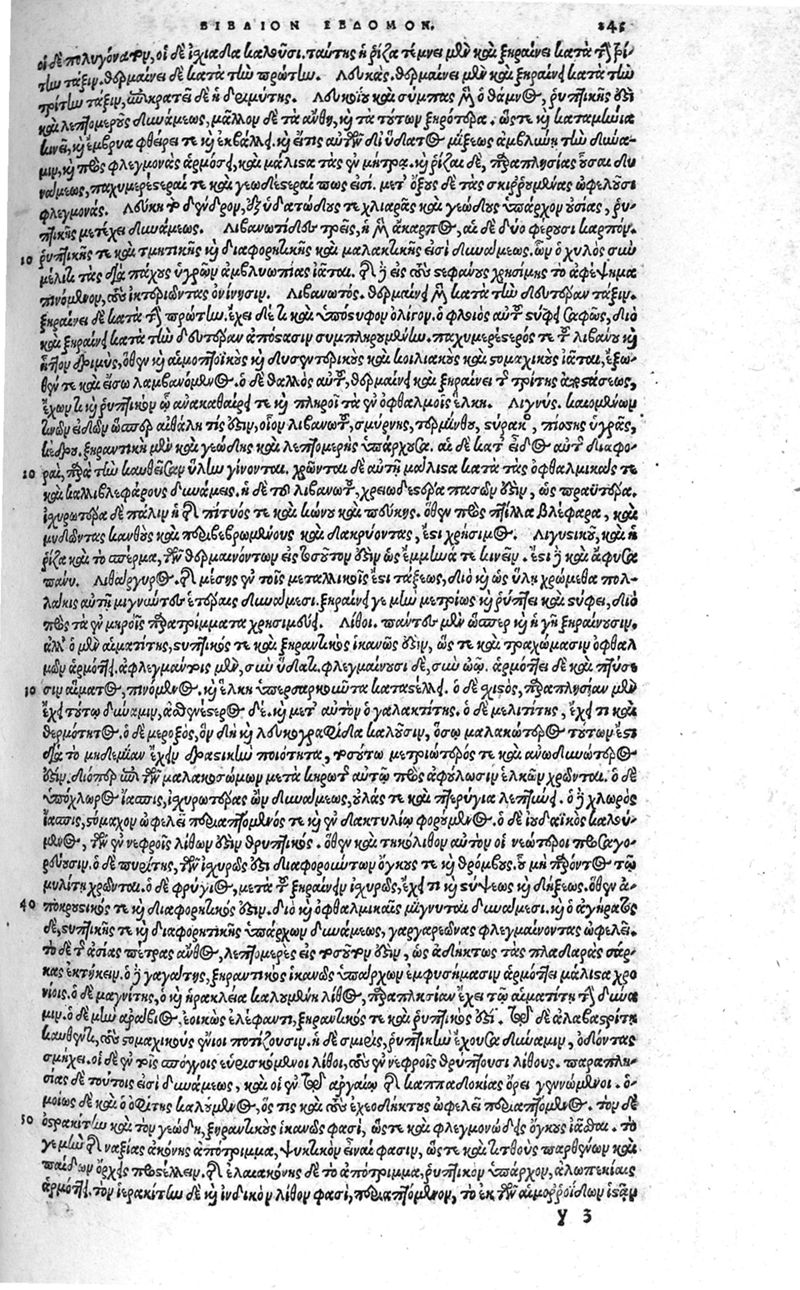 ΒΙΒΛΙΟΝ ΕΒΔΟΜΟΝ. 245
οἱ δὲ πολυγόνατον, οἱ δὲ ἰχιάδα καλοῦσι. ταύτης ἡ ῥίζα τέμνει μὲν καὶ ξηραίνει κατὰ τὴν
τάξιν. θερμαίνει δὲ κατὰ τὴν πρώτην. Λευκὰς. θερμαίνει μὲν καὶ ξηραίνει κατὰ τὴν
τρίτην τάξιν, ἐπικρατεῖ δὲ ἡ δριμύτης. Λευκοΐου καὶ σύμπας μὲν ὁ θάμνος, ῥυπτικῆς ἐστι
καὶ λεπτομεροῦς δυνάμεως, μᾶλλον δὲ τὰ ἄνθη, καὶ τὰ τούτων ξηρότερα. ὥστε καὶ καταμήνια
κινεῖ, καὶ ἔμβρυα φθείρει τε καὶ ἐκβάλλει. καὶ εἴ τις αὐτῶν διὰ ὕδατος μίξεως ἀμβλύνει τὴν δύναμιν,
καὶ πρὸς φλεγμονὰς ἁρμόσει, καὶ μάλιστα τὰς ἐν μήτρᾳ. καὶ ῥίζαι δὲ, παραπλησίας οὖσαι
δυνάμεως, παχυμερέστεραί τε καὶ γεωδέστεραί πως εἰσί. μετ' ὄξους δὲ τὰς σκιῤῥουμένας ὠφελοῦσι
φλεγμονάς. Λεύκη τὸ δένδρον, ἐξ ὑδατώδους τε χλιαρᾶς καὶ γεώδους ὑπάρχον οὐσίας, ῥυπτικῆς
μετέχει δυνάμεως. Λιβανωτίδες τρεῖς, ἡ μὲν ἄκαρπος, αἱ δὲ δύο φέρουσι καρπόν.
10 ῥυπτικῆς τε καὶ τμητικῆς καὶ διαφορητικῆς καὶ μαλακτικῆς εἰσι δυνάμεως. ὧν ὁ χυλὸς σὺν
μέλιτι τὰς διὰ πάχος ὑγρῶν ἀμβλυωπίας ἰᾶται. τῆς δὲ εἰς τοὺς στεφάνους χρησίμης τὸ ἀφέψημα
πινόμενον, τοὺς ἰκτεριῶντας ὀνίνησιν. Λιβανωτός. θερμαίνει μὲν κατὰ τὴν δευτέραν τάξιν.
ξηραίνει δὲ κατὰ τὴν πρώτην. ἔχει δέ τι καὶ ὑπόστυφον ὀλίγον. ὁ φλοιὸς αὐτοῦ στύφει σαφῶς, διὸ
καὶ ξηραίνει κατὰ τὴν δευτέραν ἀπόστασιν συμπληρουμένην. παχυμερέστερος τε τοῦ λιβάνου καὶ
ἧττον δριμὺς, ὅθεν καὶ αἱμοπτοϊκοὺς καὶ δυσεντερικοὺς καὶ κοιλιακοὺς καὶ στομαχικοὺς ἰᾶται, ἔξωθέν
τε καὶ εἴσω λαμβανόμενος. ὁ δὲ θαλλὸς αὐτοῦ, θερμαίνει καὶ ξηραίνει τῆς τρίτης ἀποστάσεως,
ἔχων τι καὶ ῥυπτικὸν ᾧ ἀνακαθαίρει τε καὶ πληροῖ τὰ ἐν ὀφθαλμοῖς ἕλκη. Λιγνὺς. καιομένων
τινῶν εἰδῶν ὥσπερ αἰθάλη τίς ἐστιν, οἷον λιβανωτοῦ, σμύρνης, τερμίνθου, στύρακος, πίσσης ὑγρᾶς,
κέδρου. ξηραντικὴ μὲν καὶ γεώδης καὶ λεπτομερὴς ὑπάρχουσα. αἱ δὲ κατ' εἶδος αὐτοῦ διαφοραὶ,
20 παρὰ τὴν καυθεῖσαν ὕλην γίνονται. χρῶνται δὲ αὐτῇ μάλιστα κατὰ τὰς ὀφθαλμικάς τε
καὶ καλλιβλεφάρους δυνάμεις. ἡ δὲ τοῦ λιβανωτοῦ, χρειωδεστέρα πασῶν ἐστιν, ὡς πραϋτέρα.
ἰσχυροτέρα δὲ πάλιν ἡ τῆς πίτυός τε καὶ κώνου καὶ πεύκης. ὅθεν πρὸς πτίλλα βλέφαρα, καὶ
μυδῶντας κανθοὺς καὶ περιβεβρωμένους καὶ δακρύοντας, ἐστὶ χρήσιμος. Λιγυστικοῦ, καὶ ἡ
ῥίζα καὶ τὸ σπέρμα, τῶν θερμαινόντων εἰς τοσοῦτόν ἐστιν ὡς ἔμμηνά τε κινεῖν. ἔστι δὲ καὶ ἄφυσα
πάνυ. Λιθάργυρος. τῆς μέσης ἐν τοῖς μεταλλικοῖς ἐστι τάξεως, διὸ καὶ ὡς ὕλῃ χρώμεθα πολλάκις
αὐτῇ μιγνύντες ἑτέραις δυνάμεσι. ξηραίνει γε μὴν μετρίως καὶ ῥύπτει καὶ στύφει, διὸ
πρὸς τὰ ἐν μηροῖς παρατρίμματα χρησιμεύει. Λίθοι. πάντες μὲν ὥσπερ καὶ ἡ γῆ ξηραίνουσιν.
ἀλλ' ὁ μὲν αἱματίτης, στυπτικός τε καὶ ξηραντικὸς ἱκανῶς ἐστιν, ὥς τε καὶ τραχώμασιν ὀφθαλμῶν
ἁρμόττει. ἀφλεγμάντοις μὲν, σὺν ὕδατι. φλεγμαίνουσι δὲ, σὺν ὠῷ. ἁρμόττει δὲ καὶ πτύσεσιν
30 αἵματος, πινόμενος. καὶ ἕλκη ὑπερσαρκοῦντα καταστέλλει. ὁ δὲ σχιστὸς, παραπλησίαν μὲν
ἔχει τούτῳ δύναμιν, ἀσθενέστερος δέ. καὶ μετ' αὐτὸν ὁ γαλακτίτης. ὁ δὲ μελιτίτης, ἔχει τι καὶ
θερμότητος. ὁ δὲ μέροξος, ὃν δὴ καὶ λευκογραφίδα καλοῦσιν, ὅσῳ μαλακώτερος τούτων ἐστὶ
διὰ τὸ μηδεμίαν ἔχειν δραστικὴν ποιότητα, τοσούτῳ μετριώτερός τε καὶ ἀνωδυνώτερός
ἐστιν. διόπερ ἐπὶ τῶν μαλακοσώμων μετὰ κηρωτοῦ αὐτῷ πρὸς ἀφούλωσιν ἑλκῶν χρῶνται. ὁ δὲ
ὑπόχλωρος ἴασπις, ἰσχυροτέρας ὢν δυνάμεως, οὐλάς τε καὶ πτερύγια λεπτύνει. ὁ δὲ χλωρὸς
ἴασπις, στόμαχον ὠφελεῖ περιαπτόμενός τε καὶ ἐν δακτυλίῳ φορούμενος. ὁ δὲ ἰουδαϊκὸς καλούμενος,
τῶν ἐν νεφροῖς λίθων ἐστὶν θρυπτικός. ὅθεν καὶ τηκόλιθον αὐτὸν οἱ νεώτεροι προσαγορεύουσιν.
ὁ δὲ πυρίτης, τῶν ἰσχυρῶς ἐστι διαφορούντων ὄγκους τε καὶ θρόμβους. οὗ μὴ παρόντος τῷ
μυλίτῃ χρῶνται. ὁ δὲ φρύγιος, μετὰ τοῦ ξηραίνειν ἰσχυρῶς, ἔχει τι καὶ στύψεως καὶ δήξεως. ὅθεν
40 ἀποκρουστικός τε καὶ διαφορητικός ἐστιν. διὸ καὶ ὀφθαλμικαῖς μίγνυται δυνάμεσι. καὶ ὁ ἀγήρατος
δὲ, στυπτικῆς τε καὶ διαφορητικῆς ὑπάρχων δυνάμεως, γαργαρεῶνας φλεγμαίνοντας ὠφελεῖ.
τὸ δὲ τῆς ἀσίας πέτρας ἄνθος, λεπτομερὲς εἰς τοσοῦτόν ἐστιν, ὡς ἀδήκτως τὰς πλαδαρὰς σάρκας
ἐκτήκειν. ὁ δὲ γαγάτης, ξηραντικὸς ἱκανῶς ὑπάρχων ἐμφυσήμασιν ἁρμόττει μάλιστα χρονίοις.
ὁ δὲ μαγνίτης, ὁ καὶ ἡρακλεία καλουμένη λίθος, παραπλησίαν ἔχει τῷ αἱματίτῃ τὴν δύναμιν.
ὁ δὲ μὴν ἀραβικὸς, ἐοικὼς ἐλέφαντι, ξηραντικός τε καὶ ῥυπτικός ἐστι. τὸν δὲ ἀλαβαστρίτην
καυθέντα, τοὺς στομαχικοὺς ἔνιοι ποτίζουσιν. ἡ δὲ σμίρις, ῥυπτικὴν ἔχουσα δύναμιν, ὀδόντας
σμήχει. οἱ δὲ ἐν τοῖς σπόγγοις εὑρισκόμενοι λίθοι, τοὺς ἐν νεφροῖς θρύπτουσι λίθους. παραπλησίας
δὲ τούτοις εἰσὶ δυνάμεως, καὶ οἱ ἐν τῷ ἀργαίῳ τῆς καππαδοκίας ὄρει γεννώμενοι.
ὁμοίως δὲ καὶ ὁ ὀφίτης καλούμενος, ὅς τις καὶ τοὺς ἐχεοδήκτους ὠφελεῖ περιαπτόμενος. τὸν δὲ
50 ὀστρακίτην καὶ τὸν γεώδη, ξηραντικοὺς ἱκανῶς φασὶ, ὥστε καὶ φλεγμονώδεις ὄγκους ἰᾶσθαι. τὸ
γε μὴν τῆς ναξίας ἀκόνης ἀπότριμμα, ψυκτικὸν εἶναί φασιν, ὥς τε καὶ τιτθοὺς παρθένων καὶ
παίδων ὄρχεις προστέλλειν. τῆς ἐλαιακόνης δὲ τὸ ἀπότριμμα, ῥυπτικὸν ὑπάρχον, ἀλωπεκίαις
ἁρμόττει. τὸν ἱερακίτην δὲ καὶ ἰνδικὸν λίθον φασὶ, περιαπτόμενον, τὸ ἐκ τῶν αἱμοῤῥοΐδων ἱστᾶν
y 3